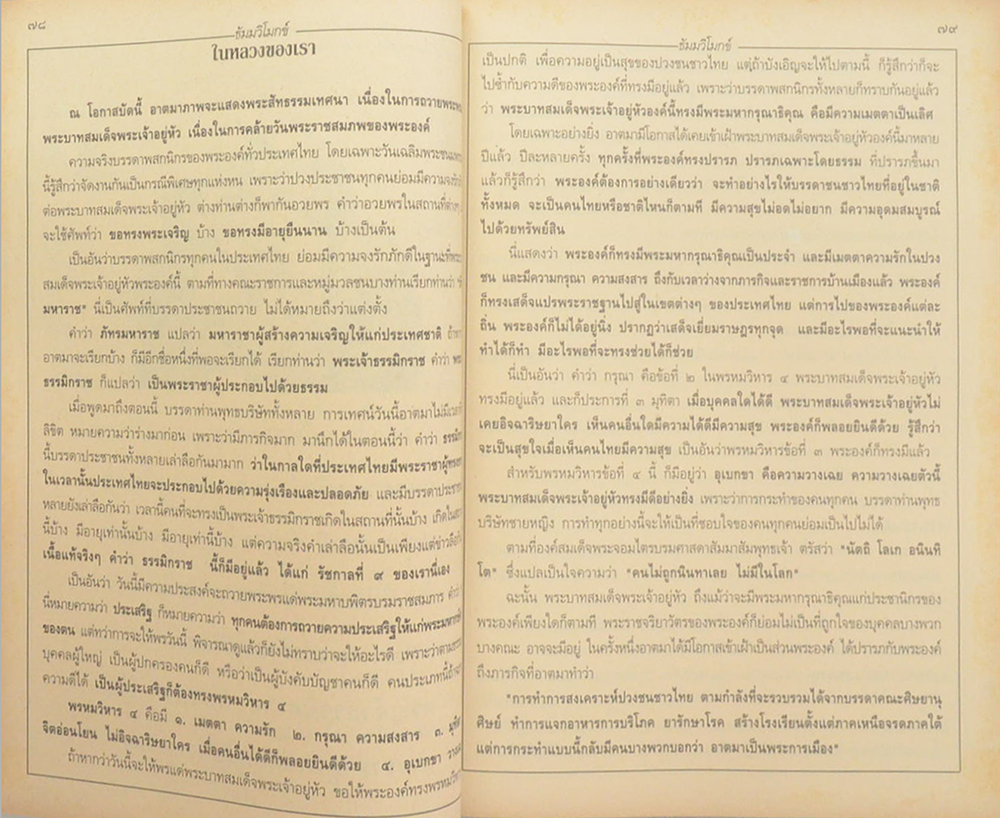 ๗๘
ธัมมวิโมกข์
ในหลวงของเรา
ณ โอกาสบัดนี้ อาตมาภาพจะแสดงพระสัทธรรมเทศนา เนื่องในการถวายพระพร
พระบาทสมเด็จพระเจ้าอยู่หัว เนื่องในการคล้ายวันพระราชสมภพของพระองค์
ความจริงบรรดาพสกนิกรของพระองค์ทั่วประเทศไทย โดยเฉพาะวันเฉลิมพระชนม
นี้รู้สึกว่าจัดงานกันเป็นกรณีพิเศษทุกแห่งหน เพราะว่าปวงประชาชนทุกคนย่อมมีความจงรัก
ต่อพระบาทสมเด็จพระเจ้าอยู่หัว ต่างท่านต่างก็พากันอวยพร คำว่าอวยพรในสถานที่ต่างๆ
จะใช้ศัพท์ว่า ขอทรงพระเจริญ บ้าง ขอทรงมีอายุยืนนาน บ้างเป็นต้น
เป็นอันว่าบรรดาพสกนิกรทุกคนในประเทศไทย ย่อมมีความจงรักภักดีในฐานะที่พระ
สมเด็จพระเจ้าอยู่หัวพระองค์นี้ ตามที่ทางคณะราชการและหมู่มวลชนบางท่านเรียกท่านว่า
มหาราช" นี่เป็นศัพท์ที่บรรดาประชาชนถวาย ไม่ได้หมายถึงว่าแต่งตั้ง
คำว่า ภัทรมหาราช แปลว่า มหาราชาผู้สร้างความเจริญให้แก่ประเทศชาติ
อาตมาจะเรียกบ้าง ก็มีอีกชื่อหนึ่งที่พอจะเรียกได้ เรียกท่านว่า พระเจ้าธรรมิกราช คำว่า
ธรรมิกราช ก็แปลว่า เป็นพระราชาผู้ประกอบไปด้วยธรรม
เมื่อพูดมาถึงตอนนี้ บรรดาท่านพุทธบริษัททั้งหลาย การเทศน์วันนี้อาตมาไม่มี
ลิขิต หมายความว่าร่างมาก่อน เพราะว่ามีภารกิจมาก มานึกได้ในตอนนี้ว่า คำว่า
นี้บรรดาประชาชนทั้งหลายเล่าลือกันมามาก ว่าในกาลใดที่ประเทศไทยมีพระราชาผู้ทรง
ในเวลานั้นประเทศไทยจะประกอบไปด้วยความรุ่งเรืองและปลอดภัย และมีบรรดาประชา
หลายยังเล่าลือกันว่า เวลานี้คนที่จะทรงเป็นพระเจ้าธรรมิกราชเกิดในสถานที่นั้นบ้าง เกิดใน
นี้บ้าง มีอายุเท่านั้นบ้าง มีอายุเท่านี้บ้าง แต่ความจริงคำเล่าลือนั้นเป็นเพียงแต่ข่าวลือ
เนื้อแท้จริงๆ คำว่า ธรรมิกราช นี้ก็มีอยู่แล้ว ได้แก่ รัชกาลที่ ๙ ของเรานี่เอง
เป็นอันว่า วันนี้มีความประสงค์จะถวายพระพรแด่พระมหาบพิตรบรมราชสมภาร
นี่หมายความว่า ประเสริฐ ก็หมายความว่า ทุกคนต้องการถวายความประเสริฐให้แก่พระมหา
ของตน แต่ทว่าการจะให้พรวันนี้ พิจารณาดูแล้วก็ยังไม่ทราบว่าจะให้อะไรดี เพราะว่าตาม
บุคคลผู้ใหญ่ เป็นผู้ปกครองคนก็ดี หรือว่าเป็นผู้บังคับบัญชาคนก็ดี คนประเภทนี้ถ้า
ความดีได้ เป็นผู้ประเสริฐก็ต้องทรงพรหมวิหาร ๔
พรหมวิหาร ๔ คือมี ๑. เมตตา ความรัก ๒. กรุณา ความสงสาร ๓. มุทิตา
จิตอ่อนโยน ไม่อิจฉาริษยาใคร เมื่อคนอื่นได้ดีก็พลอยยินดีด้วย ๔. อุเบกขา
ถ้าหากว่าวันนี้จะให้พรแด่พระบาทสมเด็จพระเจ้าอยู่หัว ขอให้พระองค์ทรงพรหมวิหาร
๗๙
ธัมมวิโมกข์
เป็นปกติ เพื่อความอยู่เป็นสุขของปวงชนชาวไทย แต่ถ้าบังเอิญจะให้ไปตามนี้ ก็รู้สึกว่าก็จะ
ไปซ้ำกับความดีของพระองค์ที่ทรงมีอยู่แล้ว เพราะว่าบรรดาพสกนิกรทั้งหลายก็ทราบกันอยู่แล้ว
ว่า พระบาทสมเด็จพระเจ้าอยู่หัวองค์นี้ทรงมีพระมหากรุณาธิคุณ คือมีความเมตตาเป็นเลิศ
โดยเฉพาะอย่างยิ่ง อาตมามีโอกาสได้เคยเข้าเฝ้าพระบาทสมเด็จพระเจ้าอยู่หัวองค์นี้มาหลาย
ปีแล้ว ปีละหลายครั้ง ทุกครั้งที่พระองค์ทรงปรารภ ปรารภเฉพาะโดยธรรม ที่ปรารภขึ้นมา
แล้วก็รู้สึกว่า พระองค์ต้องการอย่างเดียวว่า จะทำอย่างไรให้บรรดาชนชาวไทยที่อยู่ในชาติ
ทั้งหมด จะเป็นคนไทยหรือชาติไหนก็ตามที มีความสุขไม่อดไม่อยาก มีความอุดมสมบูรณ์
ไปด้วยทรัพย์สิน
นี่แสดงว่า พระองค์ก็ทรงมีพระมหากรุณาธิคุณเป็นประจำ และมีเมตตาความรักในปวง
ชน และมีความกรุณา ความสงสาร ถึงกับเวลาว่างจากภารกิจและราชการบ้านเมืองแล้ว พระองค์
ก็ทรงเสด็จแปรพระราชฐานไปสู่ในเขตต่างๆ ของประเทศไทย แต่การไปของพระองค์แต่ละ
ถิ่น พระองค์ก็ไม่ได้อยู่นิ่ง ปรากฏว่าเสด็จเยี่ยมราษฎรทุกจุด และมีอะไรพอที่จะแนะนำให้
ทำได้ก็ทำ มีอะไรพอที่จะทรงช่วยได้ก็ช่วย
นี่เป็นอันว่า คำว่า กรุณา คือข้อที่ ๒ ในพรหมวิหาร ๔ พระบาทสมเด็จพระเจ้าอยู่หัว
ทรงมีอยู่แล้ว และก็ประการที่ ๓ มุทิตา เมื่อบุคคลใดได้ดี พระบาทสมเด็จพระเจ้าอยู่หัวไม่
เคยอิจฉาริษยาใคร เห็นคนอื่นใดมีความได้ดีมีความสุข พระองค์ก็พลอยยินดีด้วย รู้สึกว่า
จะเป็นสุขใจเมื่อเห็นคนไทยมีความสุข เป็นอันว่าพรหมวิหารข้อที่ ๓ พระองค์ก็ทรงมีแล้ว
สำหรับพรหมวิหารข้อที่ ๔ นี้ ก็มีอยู่ว่า อุเบกขา คือความวางเฉย ความวางเฉยตัวนี้
พระบาทสมเด็จพระเจ้าอยู่หัวทรงมีดีอย่างยิ่ง เพราะว่าการกระทำของคนทุกคน บรรดาท่านพุทธ
บริษัทชายหญิง การทำทุกอย่างนี้จะให้เป็นที่ชอบใจของคนทุกคนย่อมเป็นไปไม่ได้
ตามที่องค์สมเด็จพระจอมไตรบรมศาสดาสัมมาสัมพุทธเจ้า ตรัสว่า "นัตถิ โลเก อนินทิ
โต" ซึ่งแปลเป็นใจความว่า "คนไม่ถูกนินทาเลย ไม่มีในโลก"
ฉะนั้น พระบาทสมเด็จพระเจ้าอยู่หัว ถึงแม้ว่าจะมีพระมหากรุณาธิคุณแก่ประชานิกรของ
พระองค์เพียงใดก็ตามที พระราชจริยาวัตรของพระองค์ก็ย่อมไม่เป็นที่ถูกใจของบุคคลบางพวก
บางคณะ อาจจะมีอยู่ ในครั้งหนึ่งอาตมาได้มีโอกาสเข้าเฝ้าเป็นส่วนพระองค์ ได้ปรารภกับพระองค์
ถึงภารกิจที่อาตมาทำว่า
"การทำการสงเคราะห์ปวงชนชาวไทย ตามกำลังที่จะรวบรวมได้จากบรรดาคณะศิษยานุ
ศิษย์ ทำการแจกอาหารการบริโภค ยารักษาโรค สร้างโรงเรียนตั้งแต่ภาคเหนือจรดภาคใต้
แต่การกระทำแบบนี้กลับมีคนบางพวกบอกว่า อาตมาเป็นพระการเมือง"